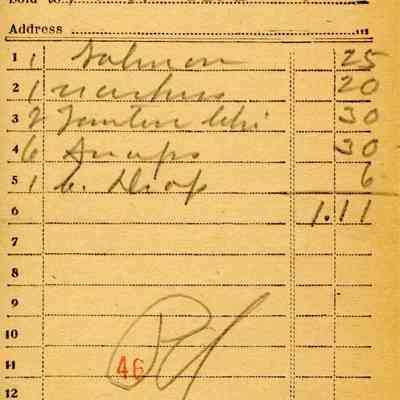 Sold to
Address
1 1 Salmon 25
2 1 20
3 2 30
4 6 Snaps 30
5 1 6. Drop 6
6 1.11
7
8
9
10
11 46
12